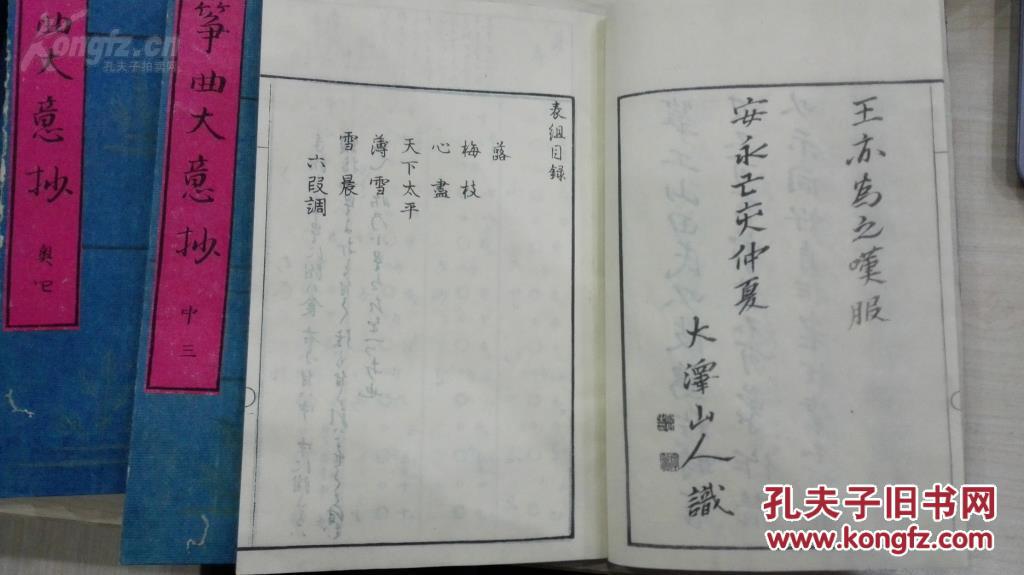 王亦為之嘆服
安永亡灾仲夏
大澤山人識
表組目録
蕗
梅枝
心盡
天下太平
薄雪
雪晨
六段調
箏曲大意抄
中
三
曲大意抄
奥
四
Kongfz.cn
孔夫子拍卖网
孔夫子旧书网
www.kongfz.com